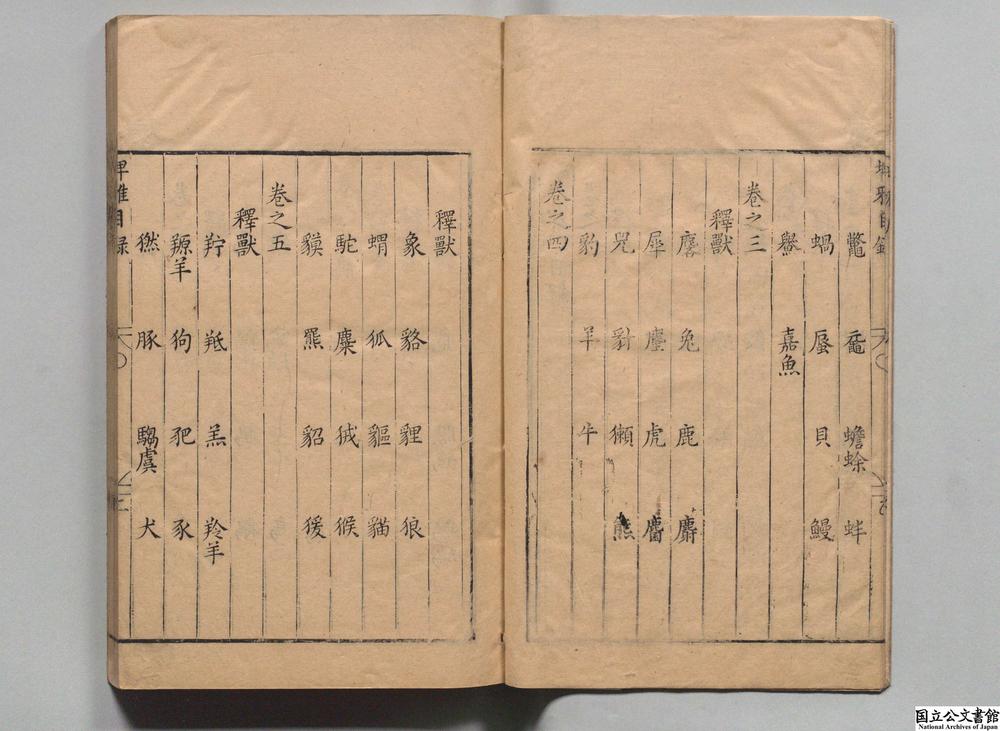 埤雅目錄
鼈 黿 蟾蜍 蚌
蝸 蜃 貝 鰻
鱟 嘉魚
卷之三
釋獸
麐 兔 鹿 麝
犀 麈 虎 麕
兕 豺 獺 熊
豹 羊 牛
卷之四
釋獸
象 貉 貍 狼
蝟 狐 貙 貓
駝 麋 狨 猴
貘 羆 貂 猨
卷之五
釋獸
羜 羝 羔 羚羊
羱羊 狗 豝 豕
猶 豚 騶虞 犬
埤雅目錄
国立公文書館
National Archives of Japan